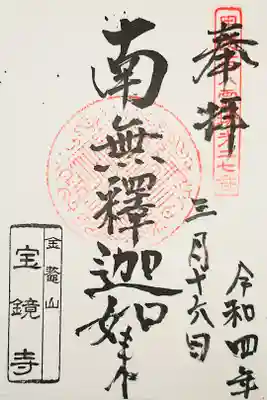 奉拝
令和四年
三月十六日
南無釋迦如来
金鼇山
宝鏡寺